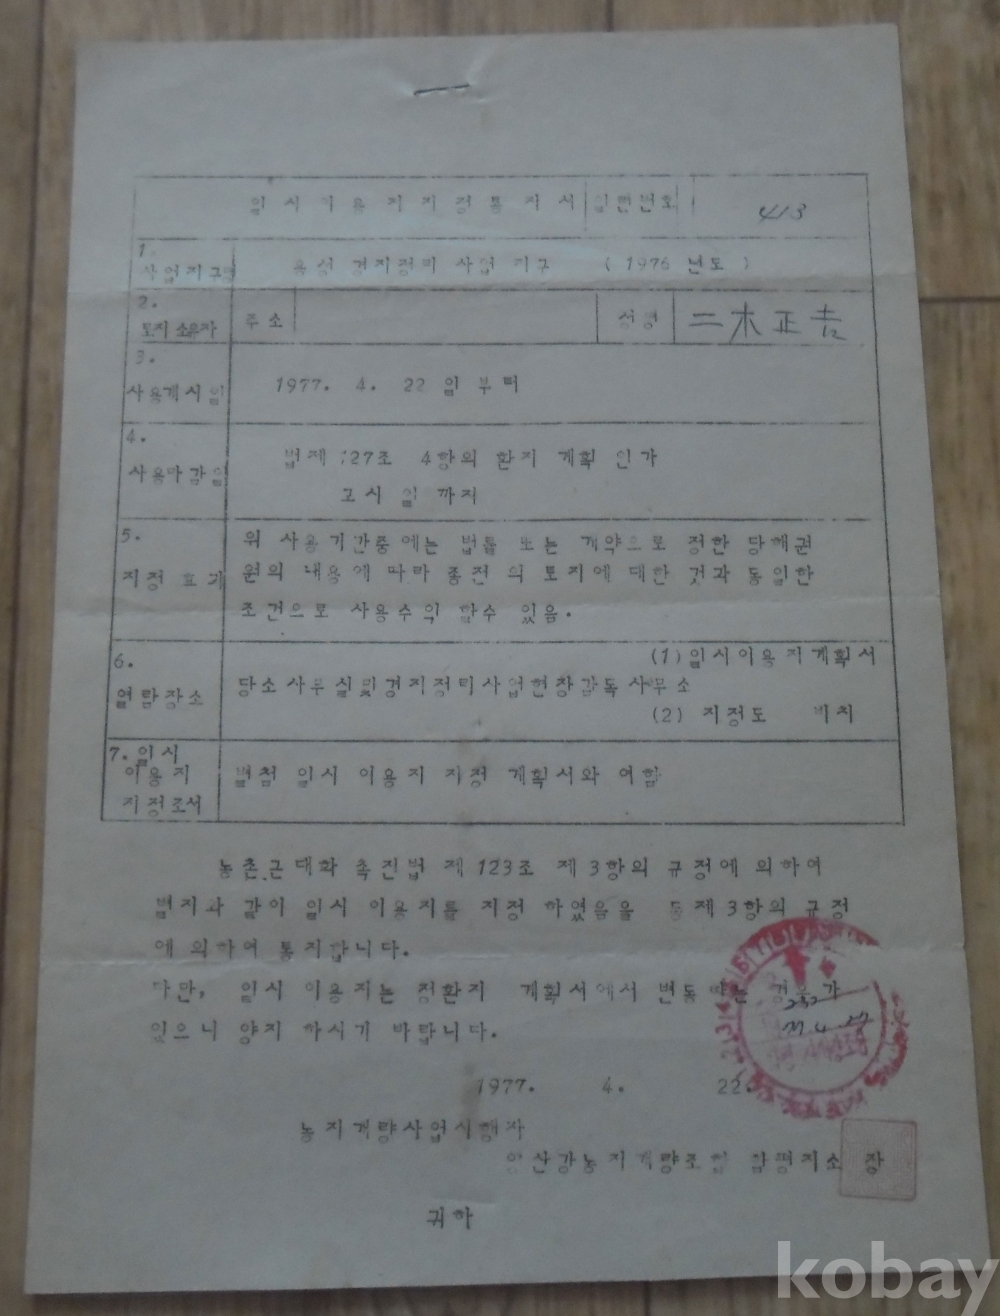 일시이용지지정통지서 일련번호 413
1. 사업지구명 용성 경지정리 사업 지구 (1976 년도)
2. 토지소유자 주소 성명 二木正吉
3. 사용개시일 1977. 4. 22 일 부터
4. 사용마감일 법제 127조 4항의 환지 계획 인가
고시 일 까지
5. 지정 효과 위 사용기간중에는 법률 또는 계약으로 정한 당해권
원의 내용에 따라 종전의 토지에 대한 것과 동일한
조건으로 사용수익 할수 있음.
6. 열람장소 (1)일시이용지계획서
당소사무실및경지정리사업현장감독사무소
(2) 지정도 비치
7. 일시
이용지 별첨 일시 이용지 지정 계획서와 여함
지정조서
농촌근대화 촉진법 제 123조 제 3항의 규정에 의하여
별지와 같이 일시 이용지를 지정 하였음을 동제 3항의 규정
에 의하여 통지합니다.
다만, 일시 이용지는 정환지 계획서에서 변동 되는 경우가
있으니 양지 하시기 바랍니다.
1977. 4. 22.
농지개량사업시행자
영산강농지개량조합 함평지소 장
귀하
kobay